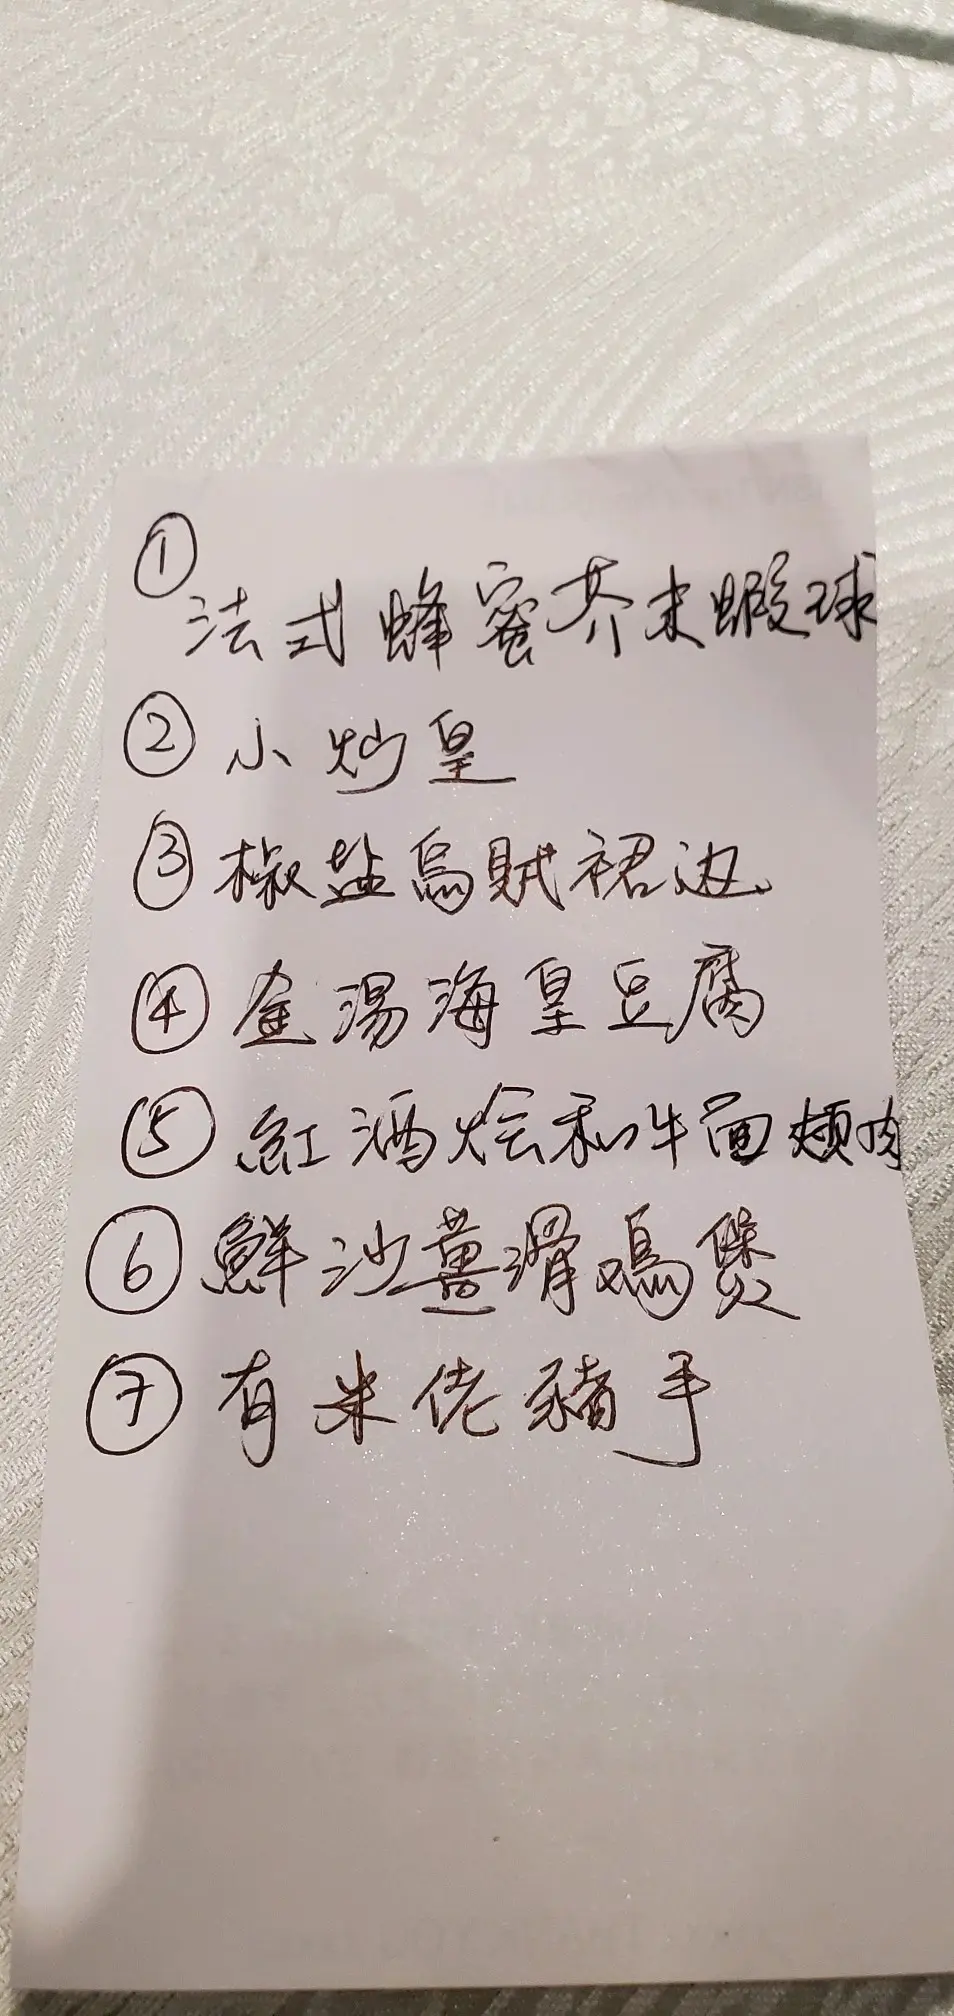 ① 法式蜂蜜芥末蝦球
② 小炒皇
③ 椒盐烏賊裙边
④ 金湯海皇豆腐
⑤ 紅酒烩和牛面頰肉
⑥ 鮮沙薑滑鸡煲
⑦ 有米佬豬手